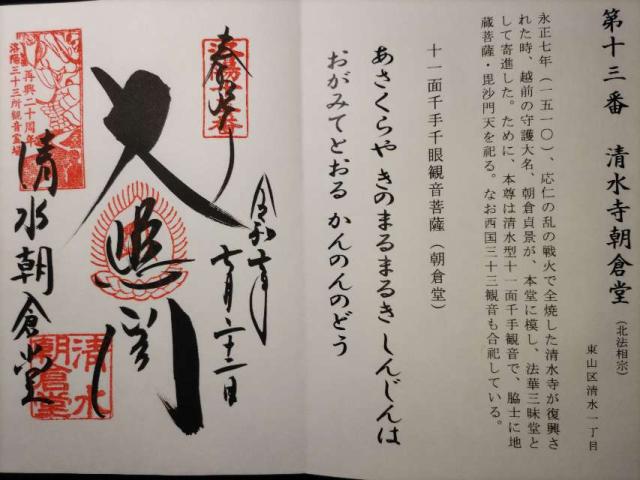 第十三番 清水寺朝倉堂(北法相宗)
東山区清水一丁目
永正七年(一五一〇)、応仁の乱の戦火で全焼した清水寺が復興さ
れた時、越前の守護大名、朝倉貞景が、本堂に模し、法華三昧堂と
して寄進した。ために、本尊は清水型十一面千手観音で、脇士に地
蔵菩薩・毘沙門天を祀る。なお西国三十三観音も合祀している。
十一面千手千眼観音菩薩(朝倉堂)
あさくらや きのまるまるき しんじんは
おがみてとおる かんのんのどう
七月二十二日
奉拝
清水朝倉堂
再興二十周年
洛陽三十三所観音霊場
清水
朝倉堂